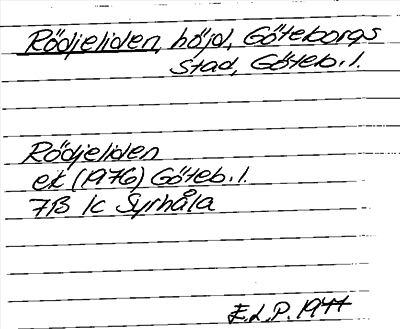 Rödjeliden, höjd, Göteborgs
Stad, Göteb. l.
Rödjeliden
ek (1976) Göteb. l.
7B 1c Syrhåla
E.L.P. 1977